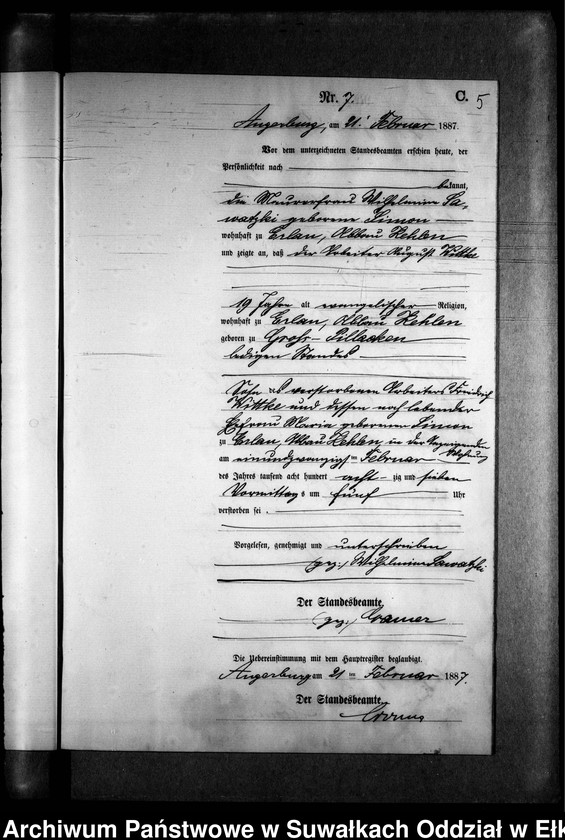 Nr. 7. C. 5
Angerburg, am 21. Februar 1887.
Vor dem unterzeichneten Standesbeamten erschien heute, der
Persönlichkeit nach
bekannt,
die Maurerfrau Wilhelmine Sa-
watzki geborene Simon
wohnhaft zu Erlau, Abbau Kehlen
und zeigte an, daß der Arbeiter August Wittke
19 Jahre alt evangelischer Religion,
wohnhaft zu Erlau, Abbau Kehlen
geboren zu Groß-Pillacken
ledigen Standes
Sohn des verstorbenen Arbeiters Friedrich
Wittke und dessen noch lebender
Ehefrau Maria geborenen Simon
zu Erlau, Abbau Kehlen, in der
Wohnung
am einundzwanzigsten Februar
des Jahres tausend acht hundert acht- zig und sieben
Vormittags um fünf Uhr
verstorben sei.
Vorgelesen, genehmigt und unterschrieben
(gez.) Wilhelmine Sawatzki
Der Standesbeamte
(gez.) Cramer
Die Uebereinstimmung mit dem Hauptregister beglaubigt.
Angerburg am 21 ten Februar 1887.
Der Standesbeamte
Archiwum Państwowe w Suwałkach Oddział w Ełk